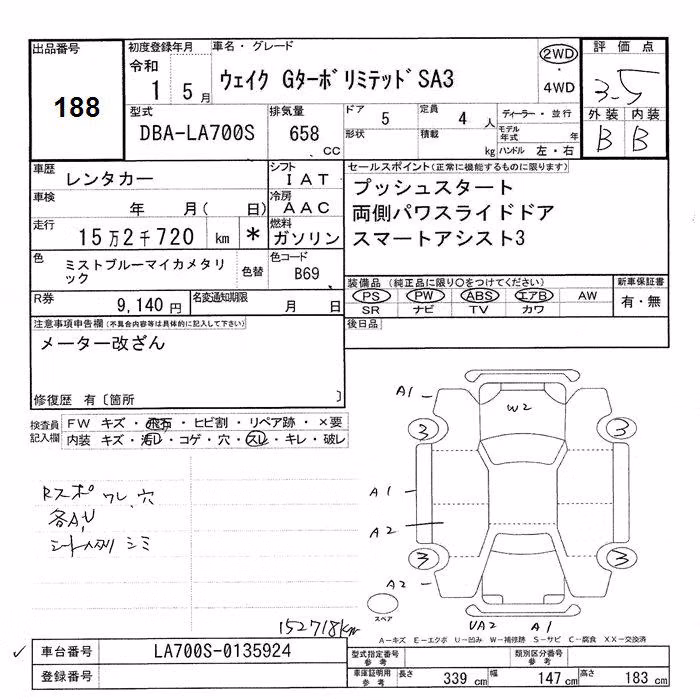 出品番号
188
初度登録年月
令和
1 5月
車名・グレード
ウェイク Gターボリミテッド SA3
2WD
・
4WD
評価点
3-5
外装 内装
B B
型式
DBA-LA700S
排気量
658
cc
ドア 5
定員 4 人
形状
積載 kg
ディーラー・並行
モデル年式 年
ハンドル 左・右
車歴
レンタカー
シフト
IAT
車検
年 月( 日)
冷房
AAC
走行
15万2千720 km *
燃料
ガソリン
色
ミストブルーマイカメタリック
色替
色コード
B69
R券
9,140 円
名変通知期限
月 日
セールスポイント(正常に機能するものに限ります)
プッシュスタート
両側パワスライドドア
スマートアシスト3
装備品 (純正品に限り○をつけてください)
PS PW ABS エアB AW
SR ナビ TV カワ
新車保証書
有・無
後日品
注意事項申告欄(不具合内容等は具体的に記入して下さい)
メーター改ざん
修復歴 有〔箇所 〕
検査員記入欄
FW キズ・飛石・ヒビ割・リペア跡・×要
内装 キズ・汚レ・コゲ・穴・スレ・キレ・破レ
Rスポ ワレ、穴
各A,U
シート シミ
152718km
A1
W2
3
3
A1
A2
3
3
A2
UA2 A1
スペア
A-キズ E-エクボ U-凹み W-補修跡 S-サビ C-腐食 XX-交換済
車台番号
LA700S-0135924
登録番号
型式指定番号
参考
類別区分番号
参考
車庫証明用
参考
長さ 339 cm
幅 147 cm
高さ 183 cm